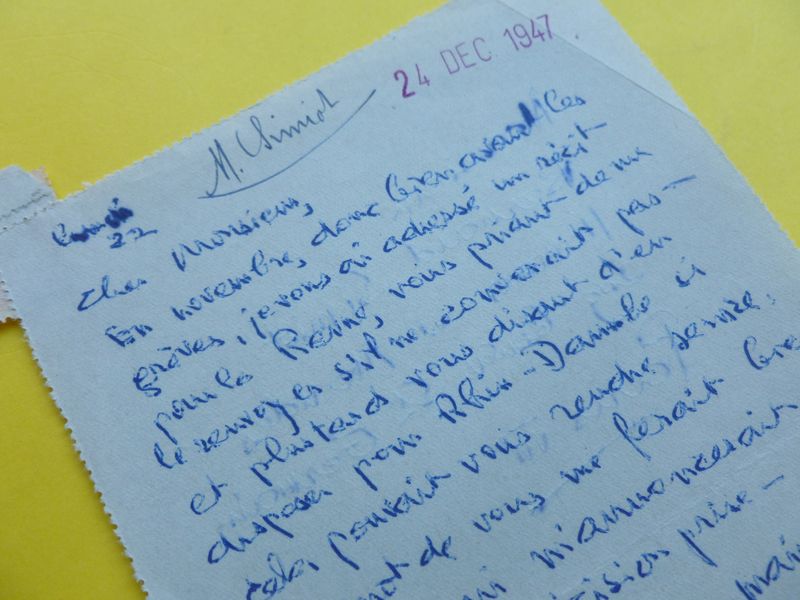 24 DEC. 1947.
M.
lundi
22
cher Monsieur,
En novembre, donc bien avant les
grèves, je vous ai adressé un récit
pour la Revue, vous priant de me
le renvoyer s'il ne convenait pas —
et plus tard vous disant d'en
disposer pour Rhin-Danube si
cela pouvait vous rendre service.
mot de vous me ferait
m'annoncerait
prise —